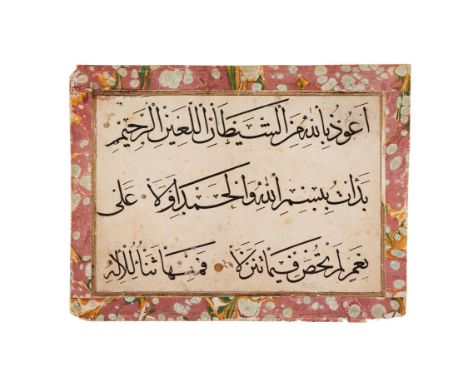 اعوذ بالله من الشيطان اللعين الرجيم
بدات ببسم الله والحمد اولا على
نعم لم تحص فيما تنزلا فمنها ثنا للاله